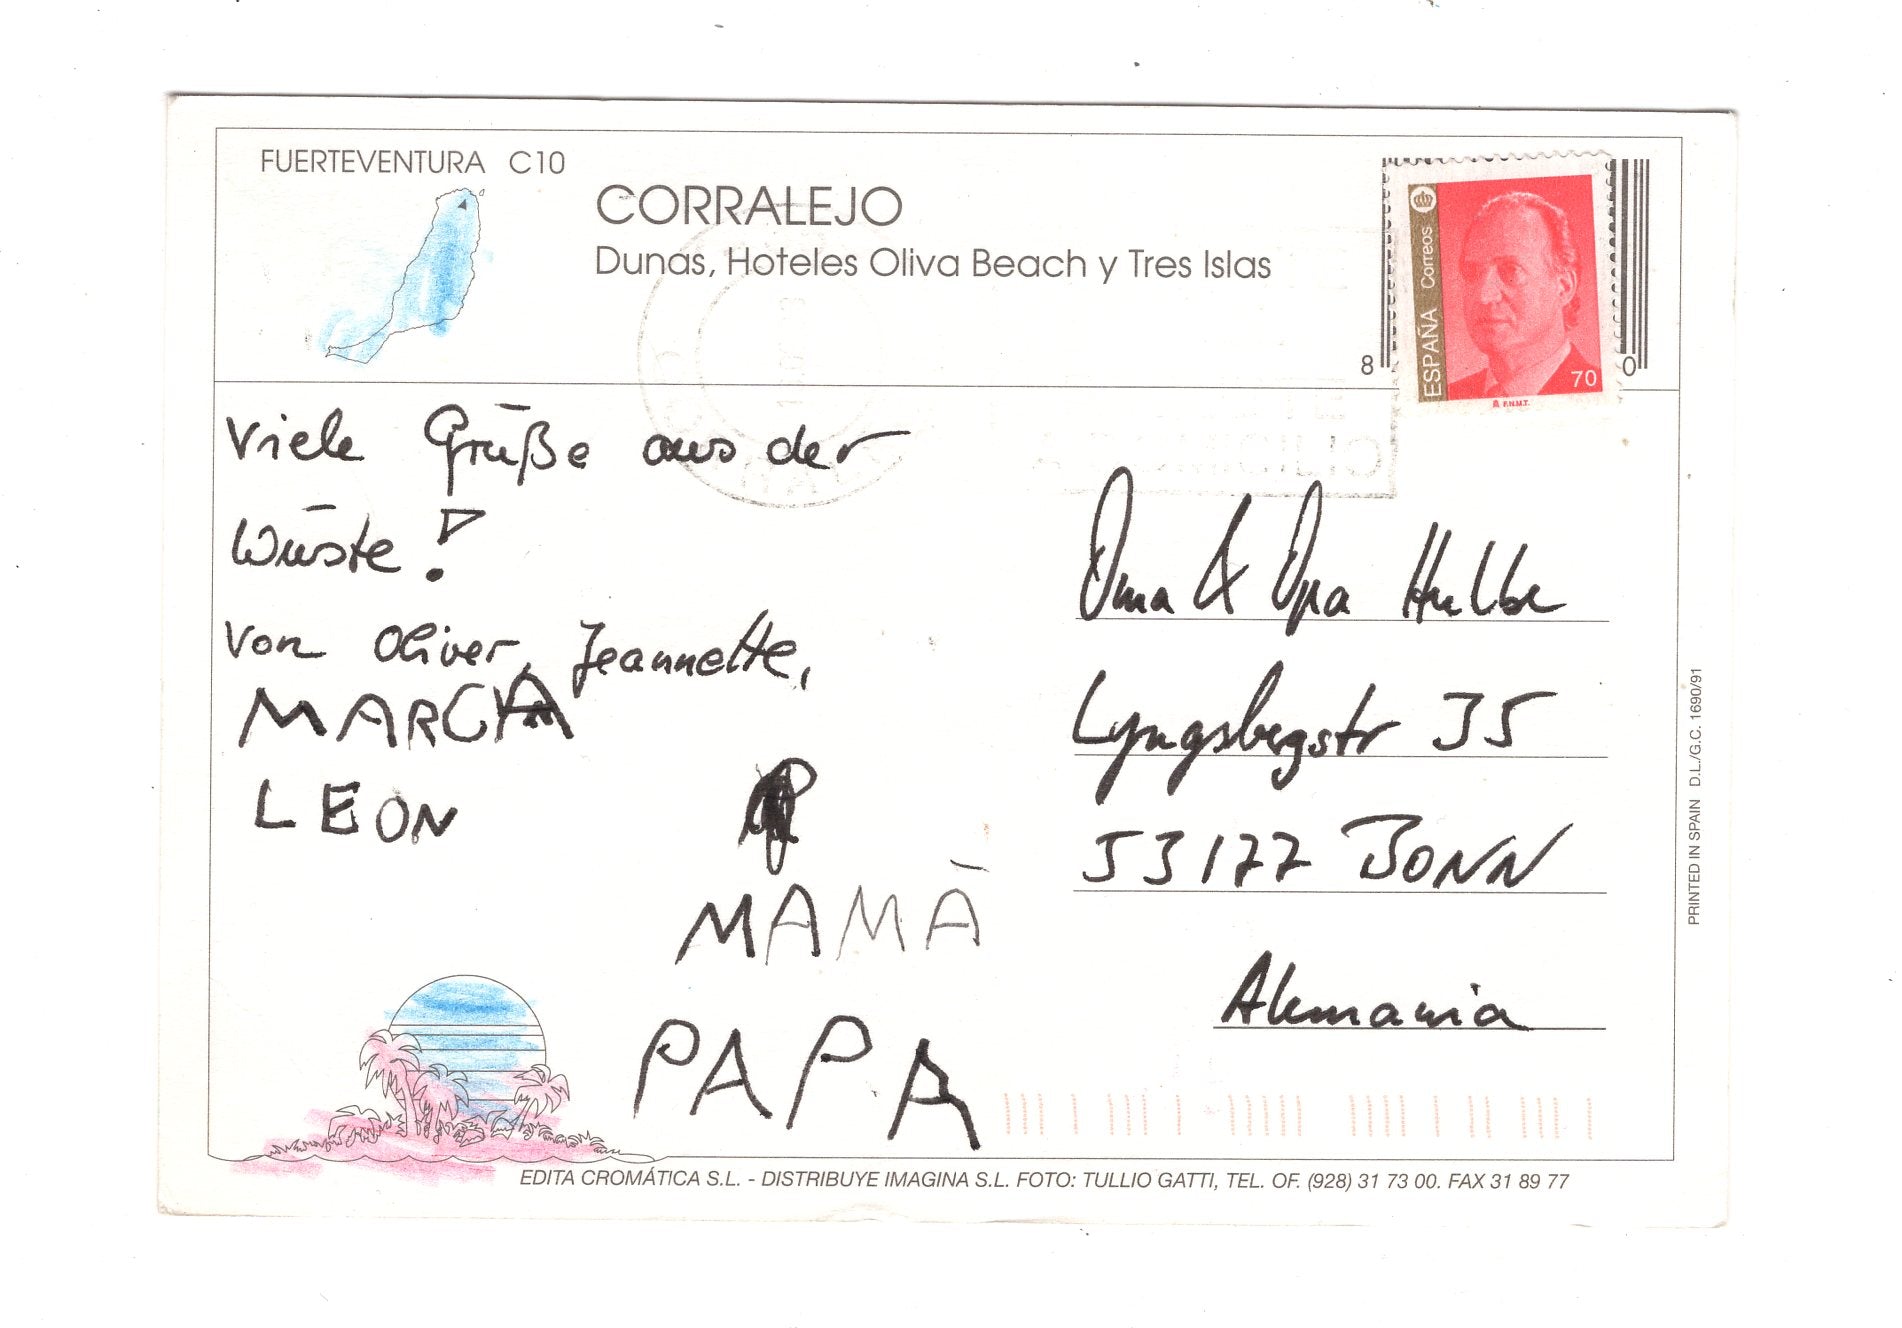 FUERTEVENTURA C10
CORRALEJO
Dunas, Hoteles Oliva Beach y Tres Islas
ESPAÑA Correos
70
F.N.M.T.
8
0
Viele Grüße aus der
Wüste!
von Oliver, Jeannette,
MARCIA
LEON
MAMÀ
PAPA
Oma & Opa Hulbe
Lyngsbergstr 35
53177 BONN
Alemania
PRINTED IN SPAIN D.L./G.C. 1690/91
EDITA CROMÁTICA S.L. - DISTRIBUYE IMAGINA S.L. FOTO: TULLIO GATTI, TEL. OF. (928) 31 73 00. FAX 31 89 77